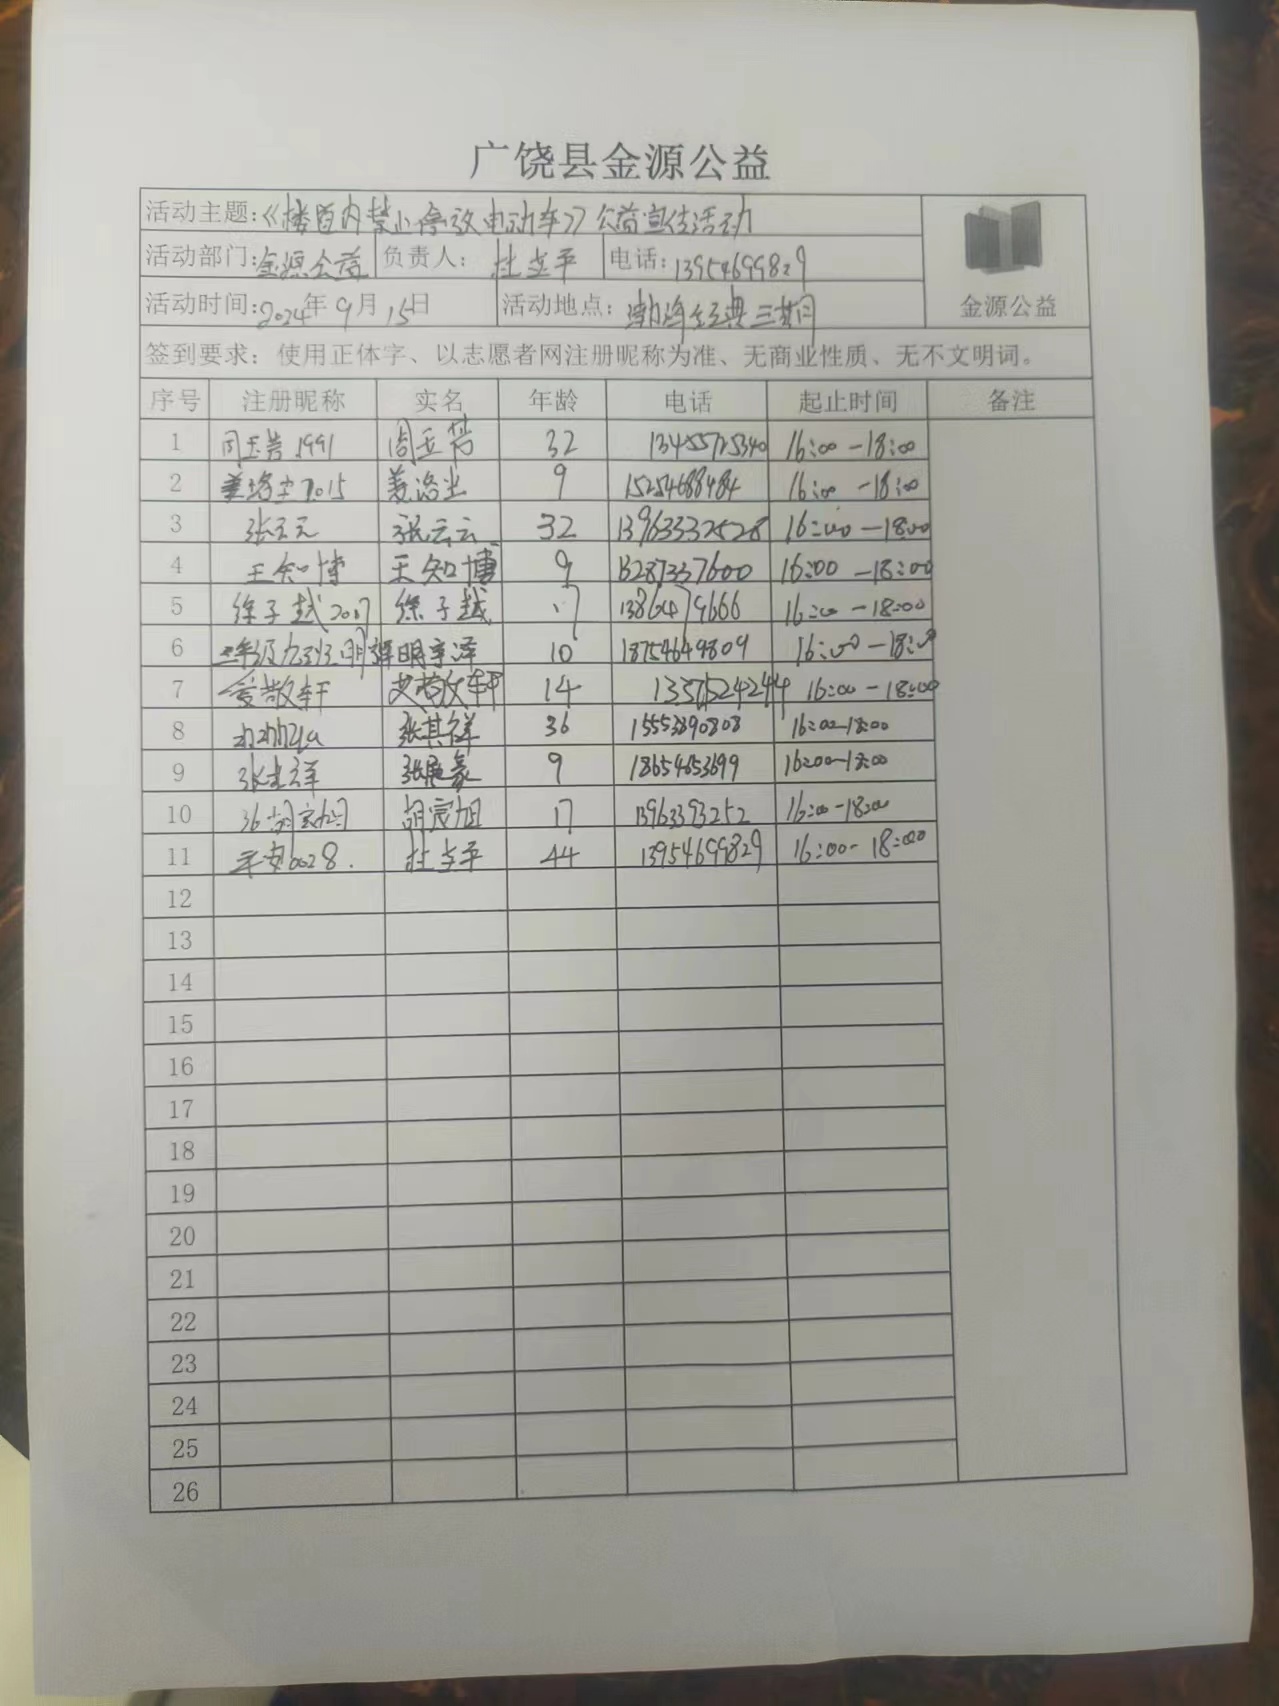 广饶县金源公益
活动主题:《楼道内禁止停放电动车》公益宣传活动
活动部门:金源公益 负责人: 杜立平 电话:13954699829
活动时间:2024年9月15日 活动地点: 渤海经典三期
金源公益
签到要求：使用正体字、以志愿者网注册昵称为准、无商业性质、无不文明词。
序号 注册昵称 实名 年龄 电话 起止时间 备注
1 1991 32 13455725340 16:00-18:00
2 2015 9 15254688484 16:00-18:00
3 张云云 32 13963332528 16:00-18:00
4 王知博 王知博 9 13287337600 16:00-18:00
5 徐子越2017 徐子越 16:00-18:00
6 10 18754649809 16:00-18:00
7 14 16:00-18:00
8 张其祥 36 16:00-18:00
9 9 18654653699 16:00-18:00
10 胡宸旭 17 13963393252 16:00-18:00
11 平安0028. 杜立平 44 13954699829 16:00-18:00
12
13
14
15
16
17
18
19
20
21
22
23
24
25
26